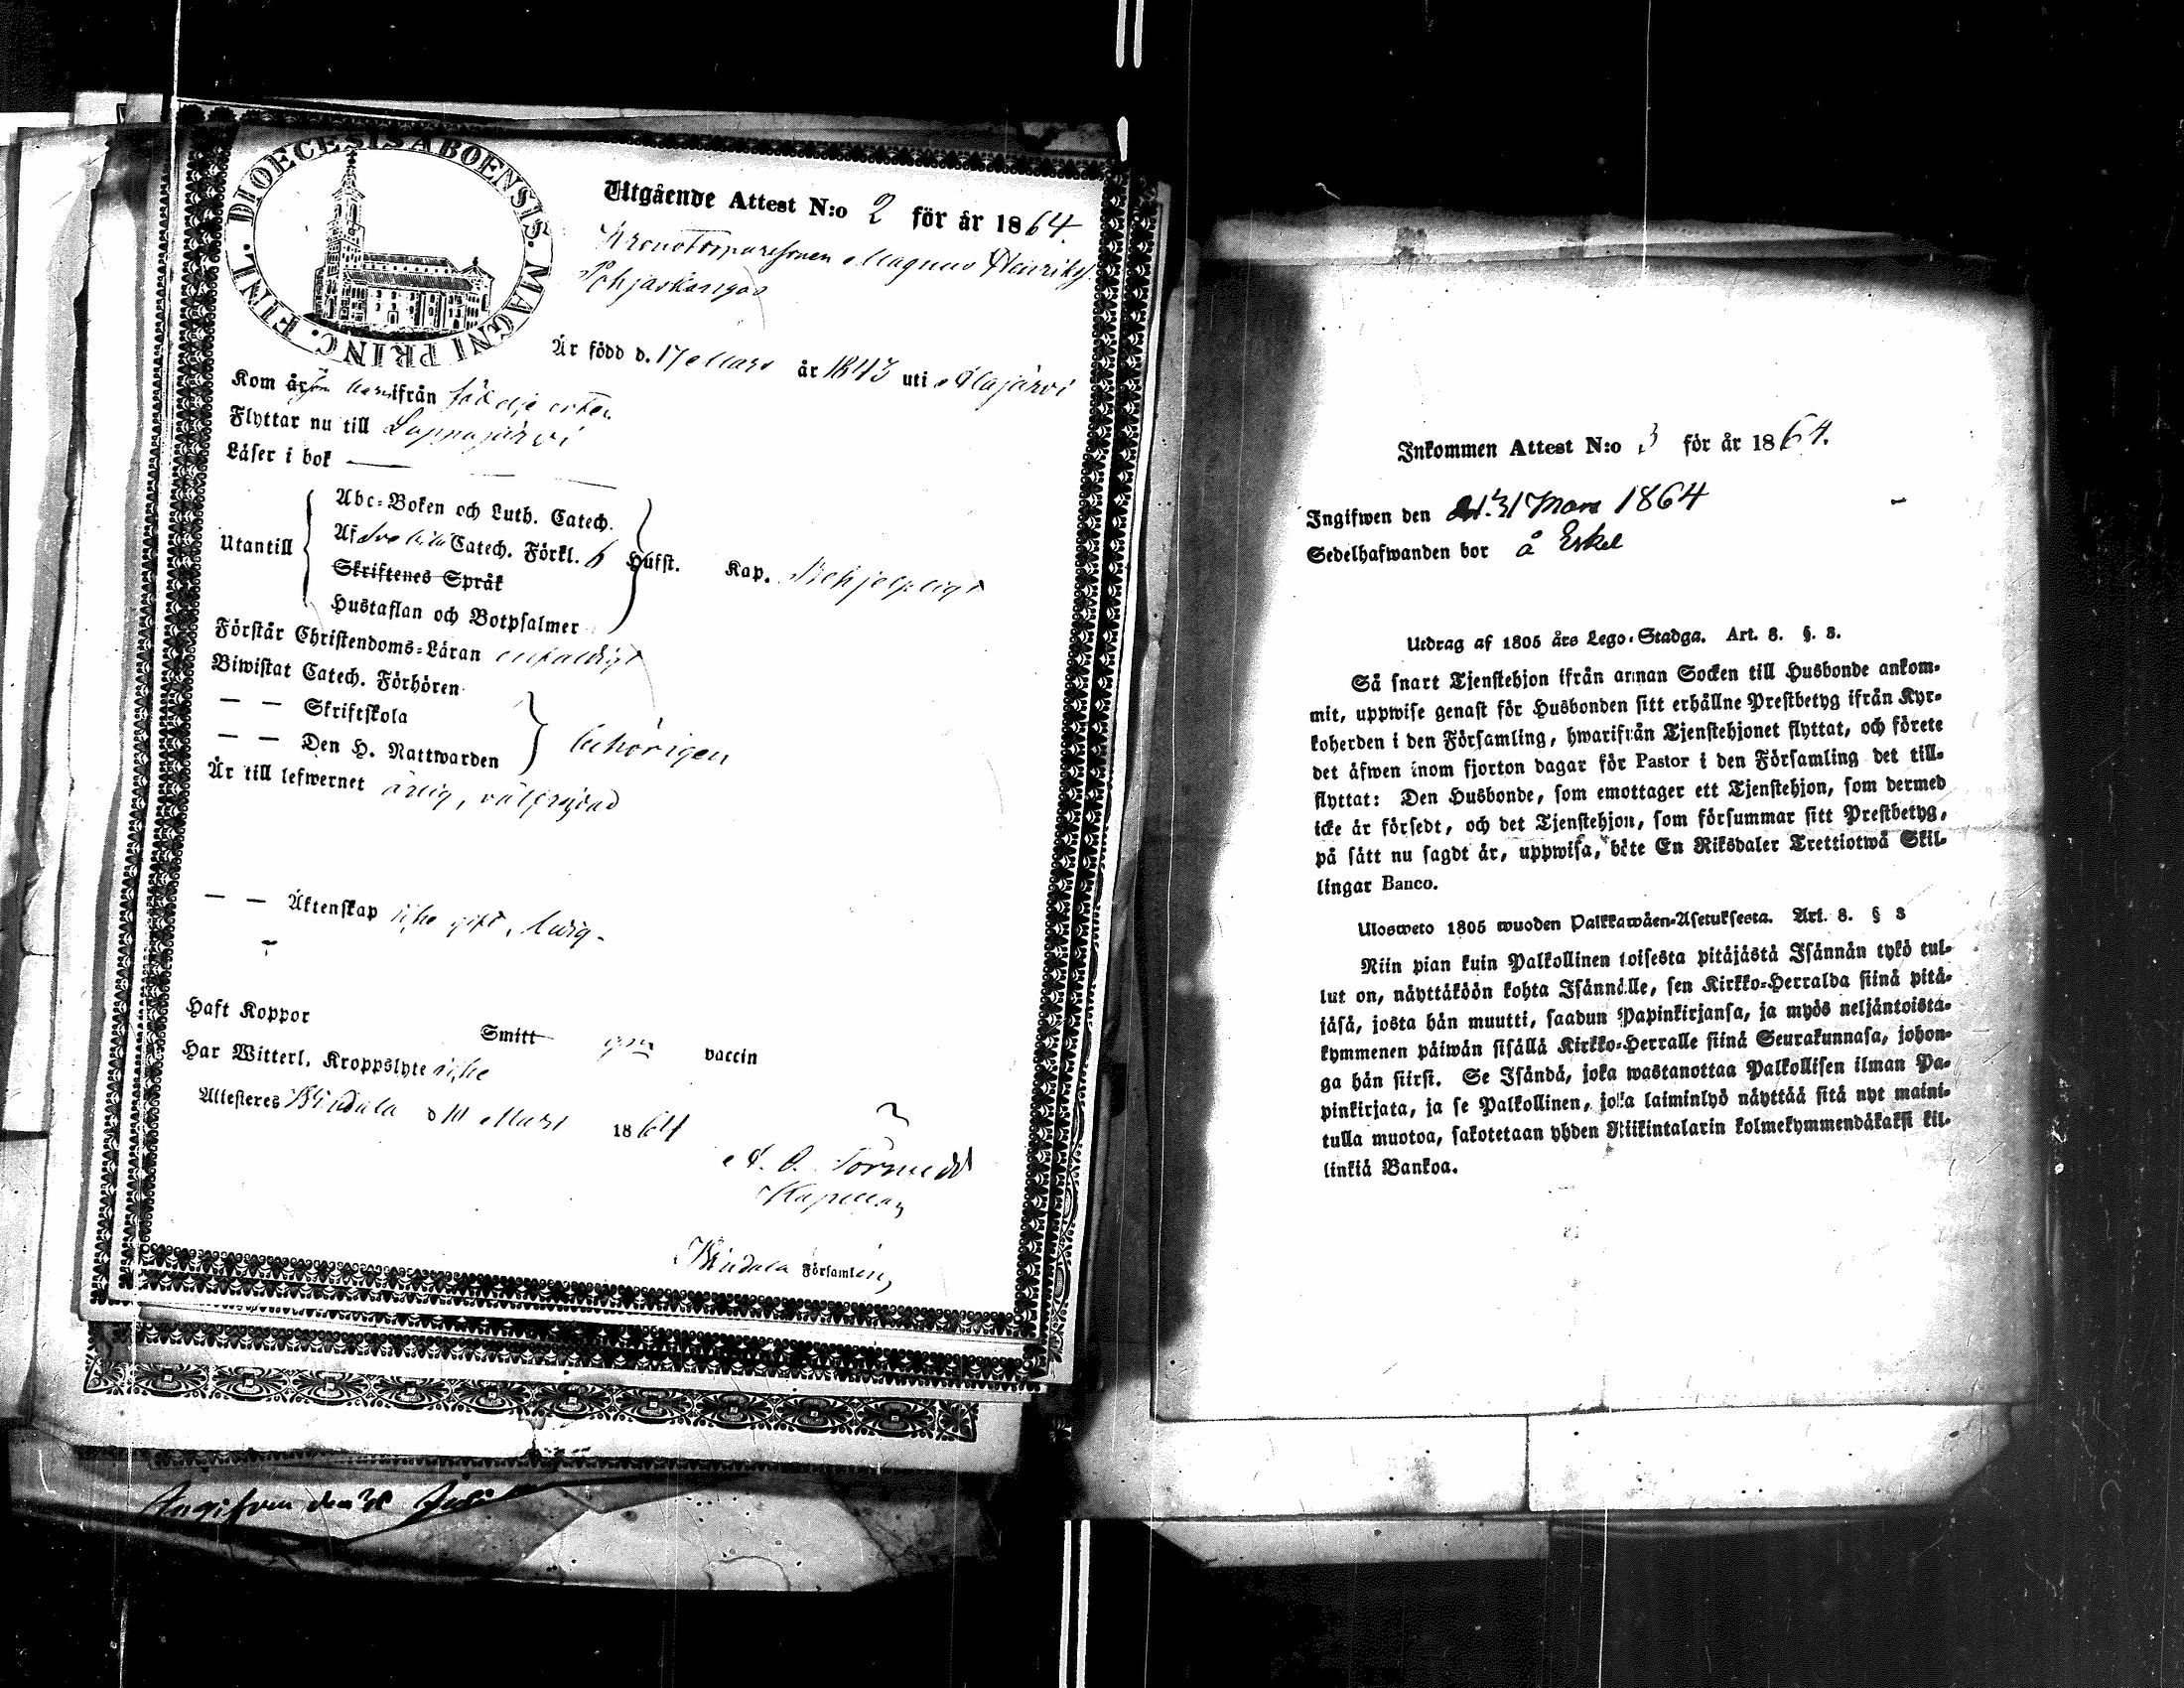 DIOECESIS ABOENSIS. MAGNI PRINC. FINL.
Utgående Attest N:o 2 för år 1864.
Kronotorparesonen Magnus Henriks.
Pohjaskangas
Är född d. 17 Mars år 1843 uti Alajärvi
Kom år som barn ifrån födelse orten
Flyttar nu till Lappajärvi
Läser i bok —
Utantill
Abc-Boken och Luth. Catech.
Af Svebilii Catech. Förkl. 6 Hufst. Kap. Behjelpligt
Skriftenes Språk
Hustaflan och Botpsalmer
Förstår Christendoms-Läran enfaldigt
Biwistat Catech. Förhören
— — Skriftskola
— — Den H. Nattwarden
behörigen
Är till lefwernet ärlig, välfrejdad
— — Äktenskap icke gift, ledig.
Haft Koppor Smitt gm vaccin
Har Witterl. Kroppslyte icke
Attesteres Windala d 10 Mars 1864
Kapellan
Windala Församling
Ingifven den 31 Juli
Inkommen Attest N:o 3 för år 1864.
Ingifwen den 31 Mars 1864
Sedelhafwanden bor å Eskel
Utdrag af 1805 års Lego-Stadga. Art. 8. §. 3.
Så snart Tjenstehjon ifrån annan Socken till Husbonde ankom-
mit, uppwise genast för Husbonden sitt erhållne Prestbetyg ifrån Kyr-
koherden i den Församling, hwarifrån Tjenstehjonet flyttat, och förete
det äfwen inom fjorton dagar för Pastor i den Församling det till-
flyttat: Den Husbonde, som emottager ett Tjenstehjon, som dermed
icke är försedt, och det Tjenstehjon, som försummar sitt Prestbetyg,
på sätt nu sagdt är, uppwisa, böte En Riksdaler Trettiotwå Skil-
lingar Banco.
Ulosweto 1805 wuoden Palkkawäen-Asetuksesta. Art. 8. § 3
Niin pian kuin Palkollinen toisesta pitäjästä Isännän tykö tul-
lut on, näyttäköön kohta Isännälle, sen Kirkko-Herralda siinä pitä-
jäsä, josta hän muutti, saadun Papinkirjansa, ja myös neljäntoista-
kymmenen päiwän sisällä Kirkko-Herralle siinä Seurakunnasa, johon-
ga hän siirsi. Se Isändä, joka wastanottaa Palkollisen ilman Pa-
pinkirjata, ja se Palkollinen, joka laiminlyö näyttää sitä nyt maini-
tulla muotoa, sakotetaan yhden Riikintalarin kolmekymmendäkaksi kil-
linkiä Bankoa.